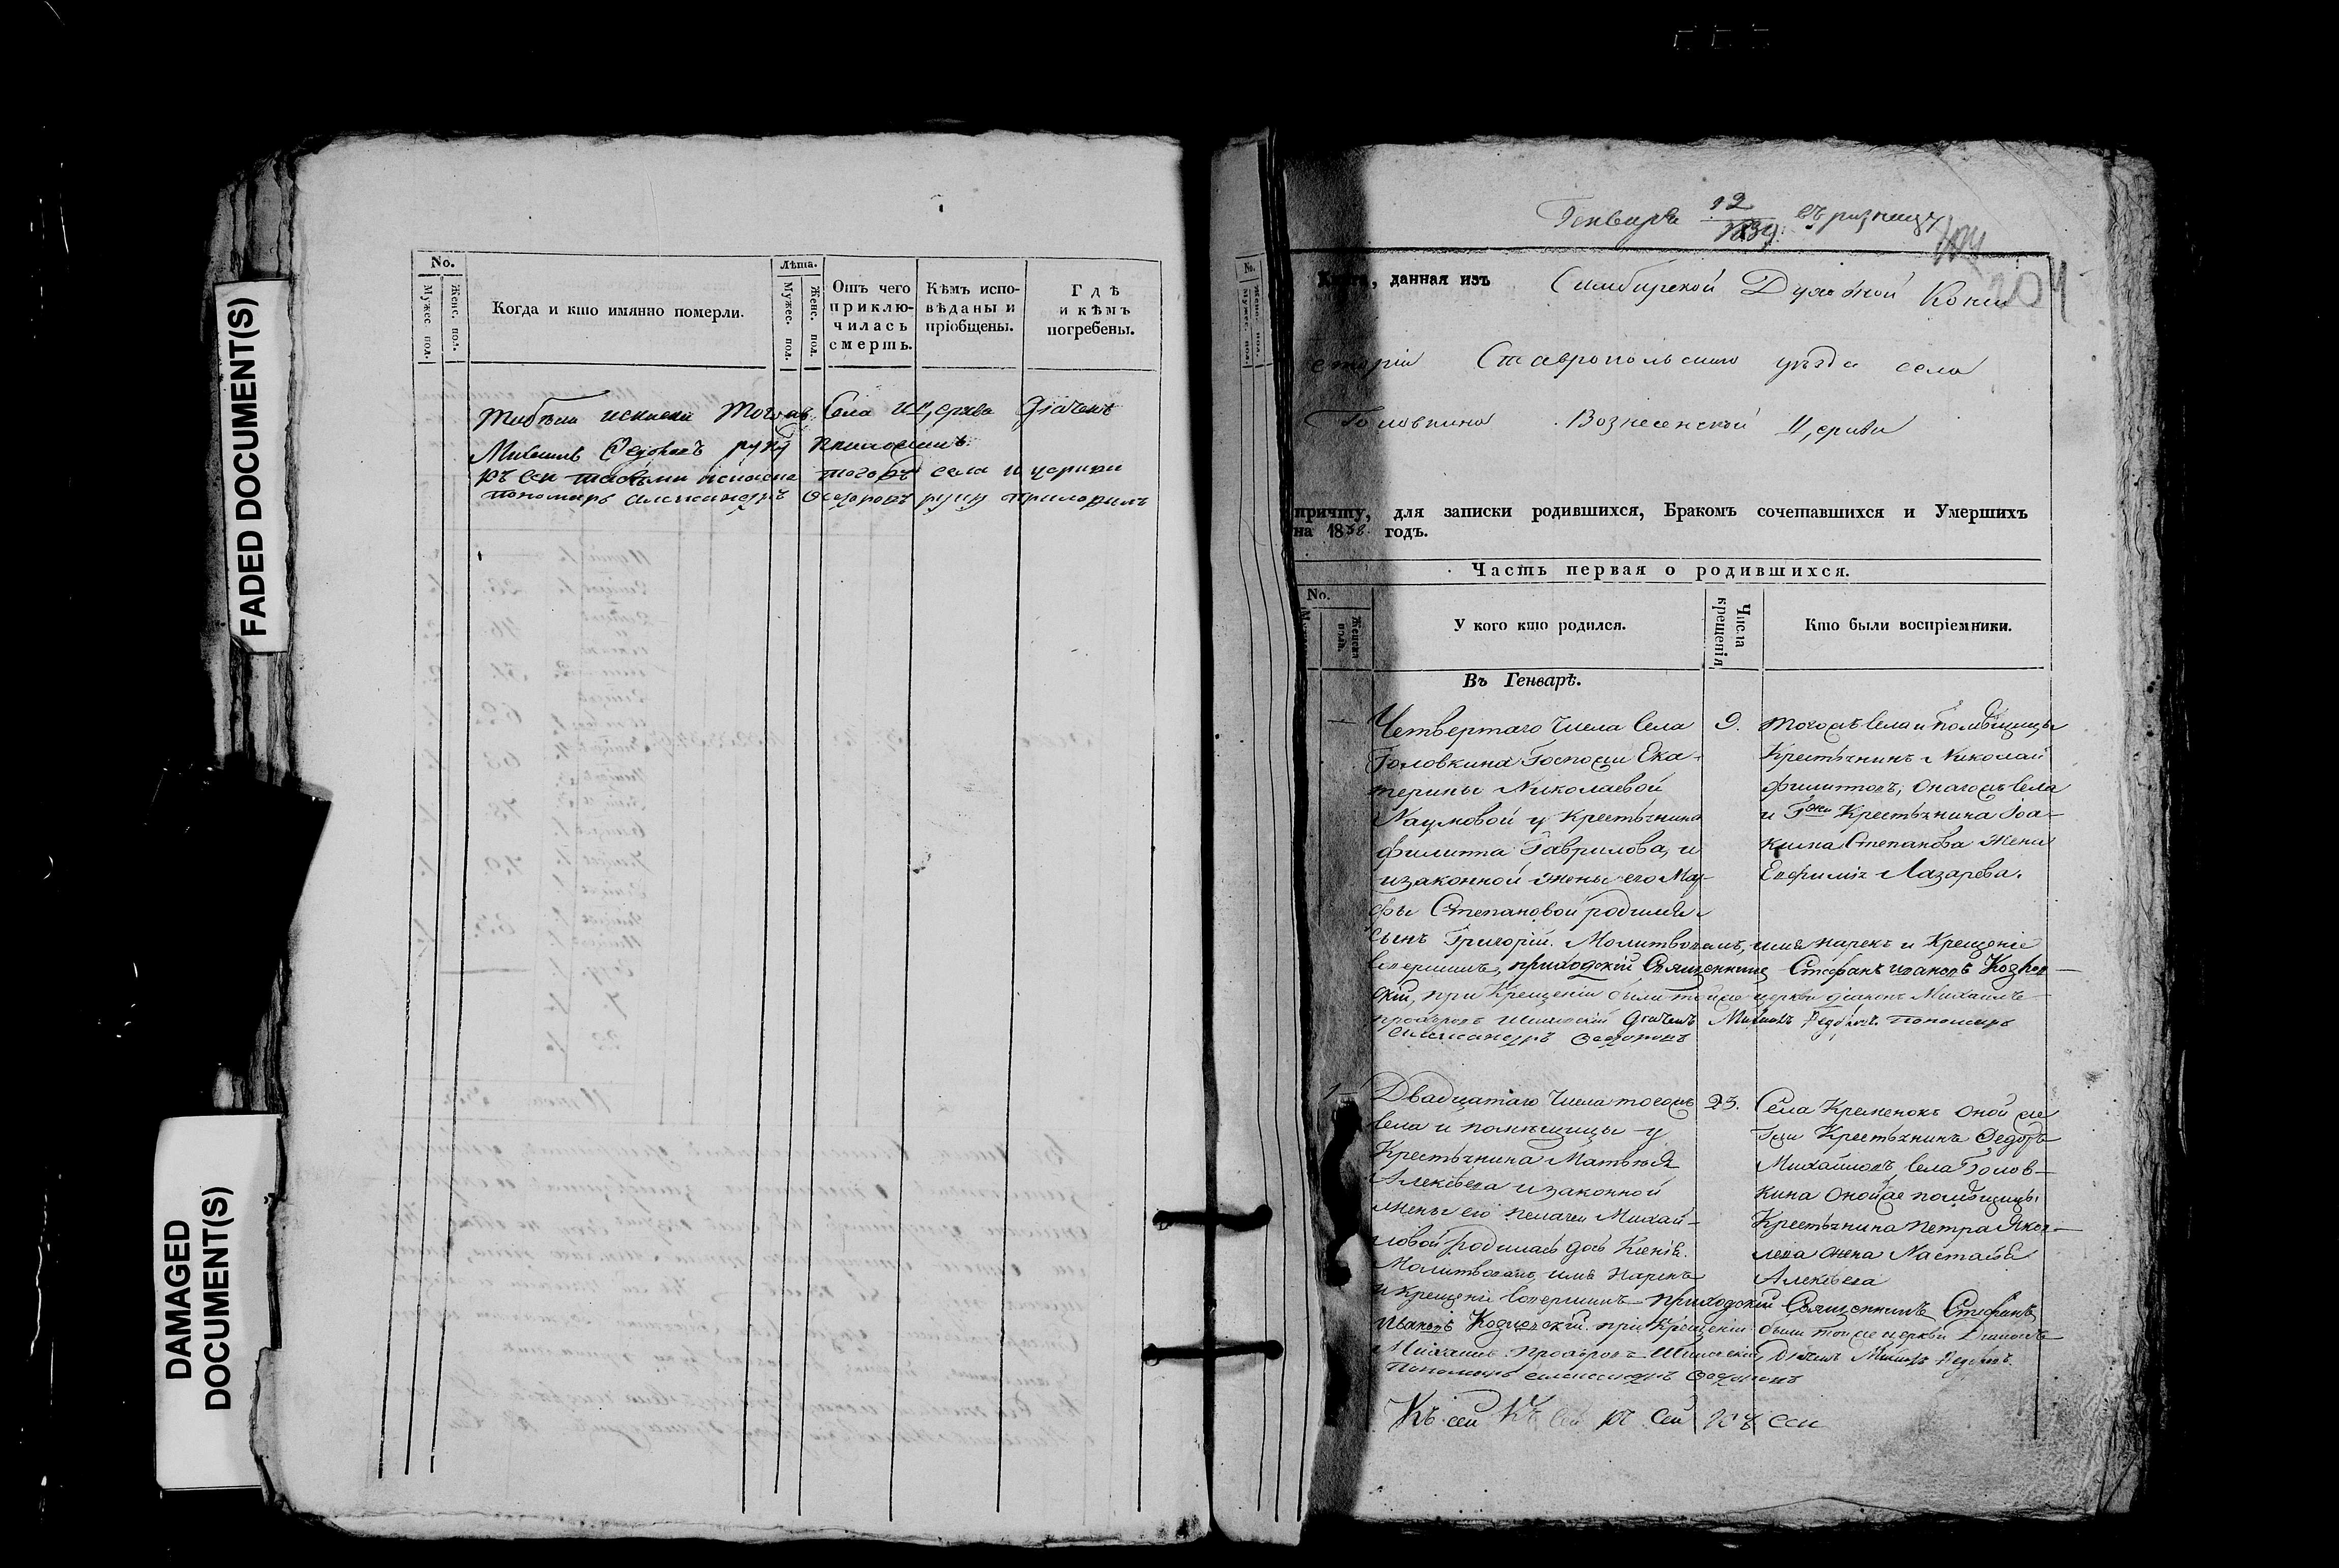 FADED DOCUMENT(S)
DAMAGED
DOCUMENT(S)
No.
Мужес. пол.
Женс. пол.
Когда и кто имянно померли.
Лѣта.
Мужес. пол.
Женс. пол.
Отъ чего
приклю-
чилась
смерть.
Кѣмъ испо-
вѣданы и
пріобщены.
Гдѣ
и кѣмъ
погребены.
Села
Михаилъ руку приложилъ
села и церкви
пономарь Александръ Ѳедоровъ руку приложилъ
Генваря 12 1839 въ ризницу
204
Книга, данная изъ Симбирской Духовной Конси
сторіи Ставропольскаго уѣзда села
Головкина Вознесенской Церкви
причту, для записки родившихся, Бракомъ сочетавшихся и Умершихъ
на 1838 годъ.
Часть первая о родившихся.
No.
Женска
У кого кто родился.
Числа
крещенія
Кто были воспріемники.
Въ Генварѣ.
Четвертаго Числа Села
Головкина Госпожи Ека-
терины Николаевой
Наумовой у Крестьянина
Филиппа Гаврилова, и
изаконной жены его Мар-
фы Степановой родился
сынъ Григорій. Молитвовалъ, имя нарекъ и Крещеніе
совершилъ, приходскій Священникъ Стефанъ Ивановъ
скій, при Крещеніи были тойже церкви діаконъ Михаилъ
Дьячекъ Михаилъ Федоровъ Пономарь
Александръ Ѳедоровъ
9.
тогожъ Села и Помѣщицы
Крестьянинъ Николай
Филипповъ, Оногожъ Села
и Гжи Крестьянина Іоа-
кима Степанова Жена
Евфимія Лазарева.
1
Двадцатаго Числа тогожъ
Села и помѣщицы у
Крестьянина Матвѣя
Алексѣева изаконной
жены его Пелагеи Михай-
ловой родилась дочь Ксенія.
Молитвовалъ, имя Нарекъ
и Крещеніе Совершилъ приходскій Священникъ Стефанъ
Ивановъ при Крещеніи были тойже церкви Діаконъ
Михаилъ Дьячекъ Михаилъ Федоровъ.
Пономарь Александръ Ѳедоровъ
23.
Села Кременокъ Оной же
Гжи Крестьянинъ Федоръ
Михайловъ, Села Голов-
кина Онойже помѣщицы
Крестьянина Петра Яков-
лева жена Настасья
Алексѣева
Къ сей Къ сей Къ Сей